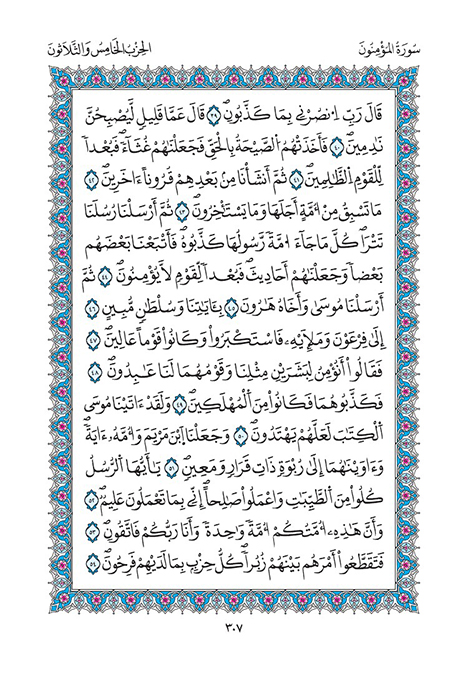 سُورَةُ الْمُؤْمِنُونَ
الحِزْبُ الخَامِسُ وَالثَّلَاثُونَ
قَالَ رَبِّ اِ۟نصُرْنِے بِمَا كَذَّبُونِۖ ٣٩ قَالَ عَمَّا قَلِيلٖ لَّيُصْبِحُنَّ
نَٰدِمِينَۖ ٤٠ فَأَخَذَتْهُمُ اُ۬لصَّيْحَةُ بِالْحَقِّ فَجَعَلْنَٰهُمْ غُثَآءٗۖ فَبُعْداٗ
لِّلْقَوْمِ اِ۬لظَّٰلِمِينَۖ ٤١ ثُمَّ أَنشَأْنَا مِنۢ بَعْدِهِمْ قُرُوناً ءَاخَرِينَۖ ٤٢
مَا تَسْبِقُ مِنُ ا۟مَّةٍ اَجَلَهَا وَمَا يَسْتَٰٔخِرُونَۖ ٤٣ ثُمَّ أَرْسَلْنَا رُسُلَنَا
تَتْر۪اۖ كُلَّ مَا جَآءَ ا۟مَّةٗ رَّسُولُهَا كَذَّبُوهُۖ فَأَتْبَعْنَا بَعْضَهُم
بَعْضاٗ وَجَعَلْنَٰهُمُۥٓ أَحَادِيثَۖ فَبُعْداٗ لِّقَوْمٖ لَّا يُؤْمِنُونَۖ ٤٤ ثُمَّ
أَرْسَلْنَا مُوس۪ىٰ وَأَخَاهُ هَٰرُونَ ٤٥ بِـَٔايَٰتِنَا وَسُلْطَٰنٖ مُّبِينٍ ٤٦
اِلَىٰ فِرْعَوْنَ وَمَلَإِيْهِۦ فَاسْتَكْبَرُواْ وَكَانُواْ قَوْماً عَالِينَۖ ٤٧
فَقَالُوٓاْ أَنُومِنُ لِبَشَرَيْنِ مِثْلِنَا وَقَوْمُهُمَا لَنَا عَٰبِدُونَۖ ٤٨
فَكَذَّبُوهُمَا فَكَانُواْ مِنَ اَ۬لْمُهْلَكِينَۖ ٤٩ وَلَقَدَ اٰتَيْنَا مُوسَى
اَ۬لْكِتَٰبَ لَعَلَّهُمْ يَهْتَدُونَۖ ٥٠ وَجَعَلْنَا اَ۪بْنَ مَرْيَمَ وَأُمَّهُۥٓ ءَايَةٗۖ
وَءَاوَيْنَٰهُمَآ إِلَىٰ رُبْوَةٖ ذَاتِ قَرَارٖ وَمَعِينٖۖ ٥١ يَٰٓأَيُّهَا اَ۬لرُّسُلُ
كُلُواْ مِنَ اَ۬لطَّيِّبَٰتِ وَاعْمَلُواْ صَٰلِحاًۖ اِنِّے بِمَا تَعْمَلُونَ عَلِيمٞۖ ٥٢
وَأَنَّ هَٰذِهِۦٓ أُمَّتُكُمُۥٓ أُمَّةٗ وَٰحِدَةٗ وَأَنَا رَبُّكُمْ فَاتَّقُونِۖ ٥٣
فَتَقَطَّعُوٓاْ أَمْرَهُم بَيْنَهُمْ زُبُراٗۖ كُلُّ حِزْبِۢ بِمَا لَدَيْهِمْ فَرِحُونَۖ ٥٤
٣٠٧